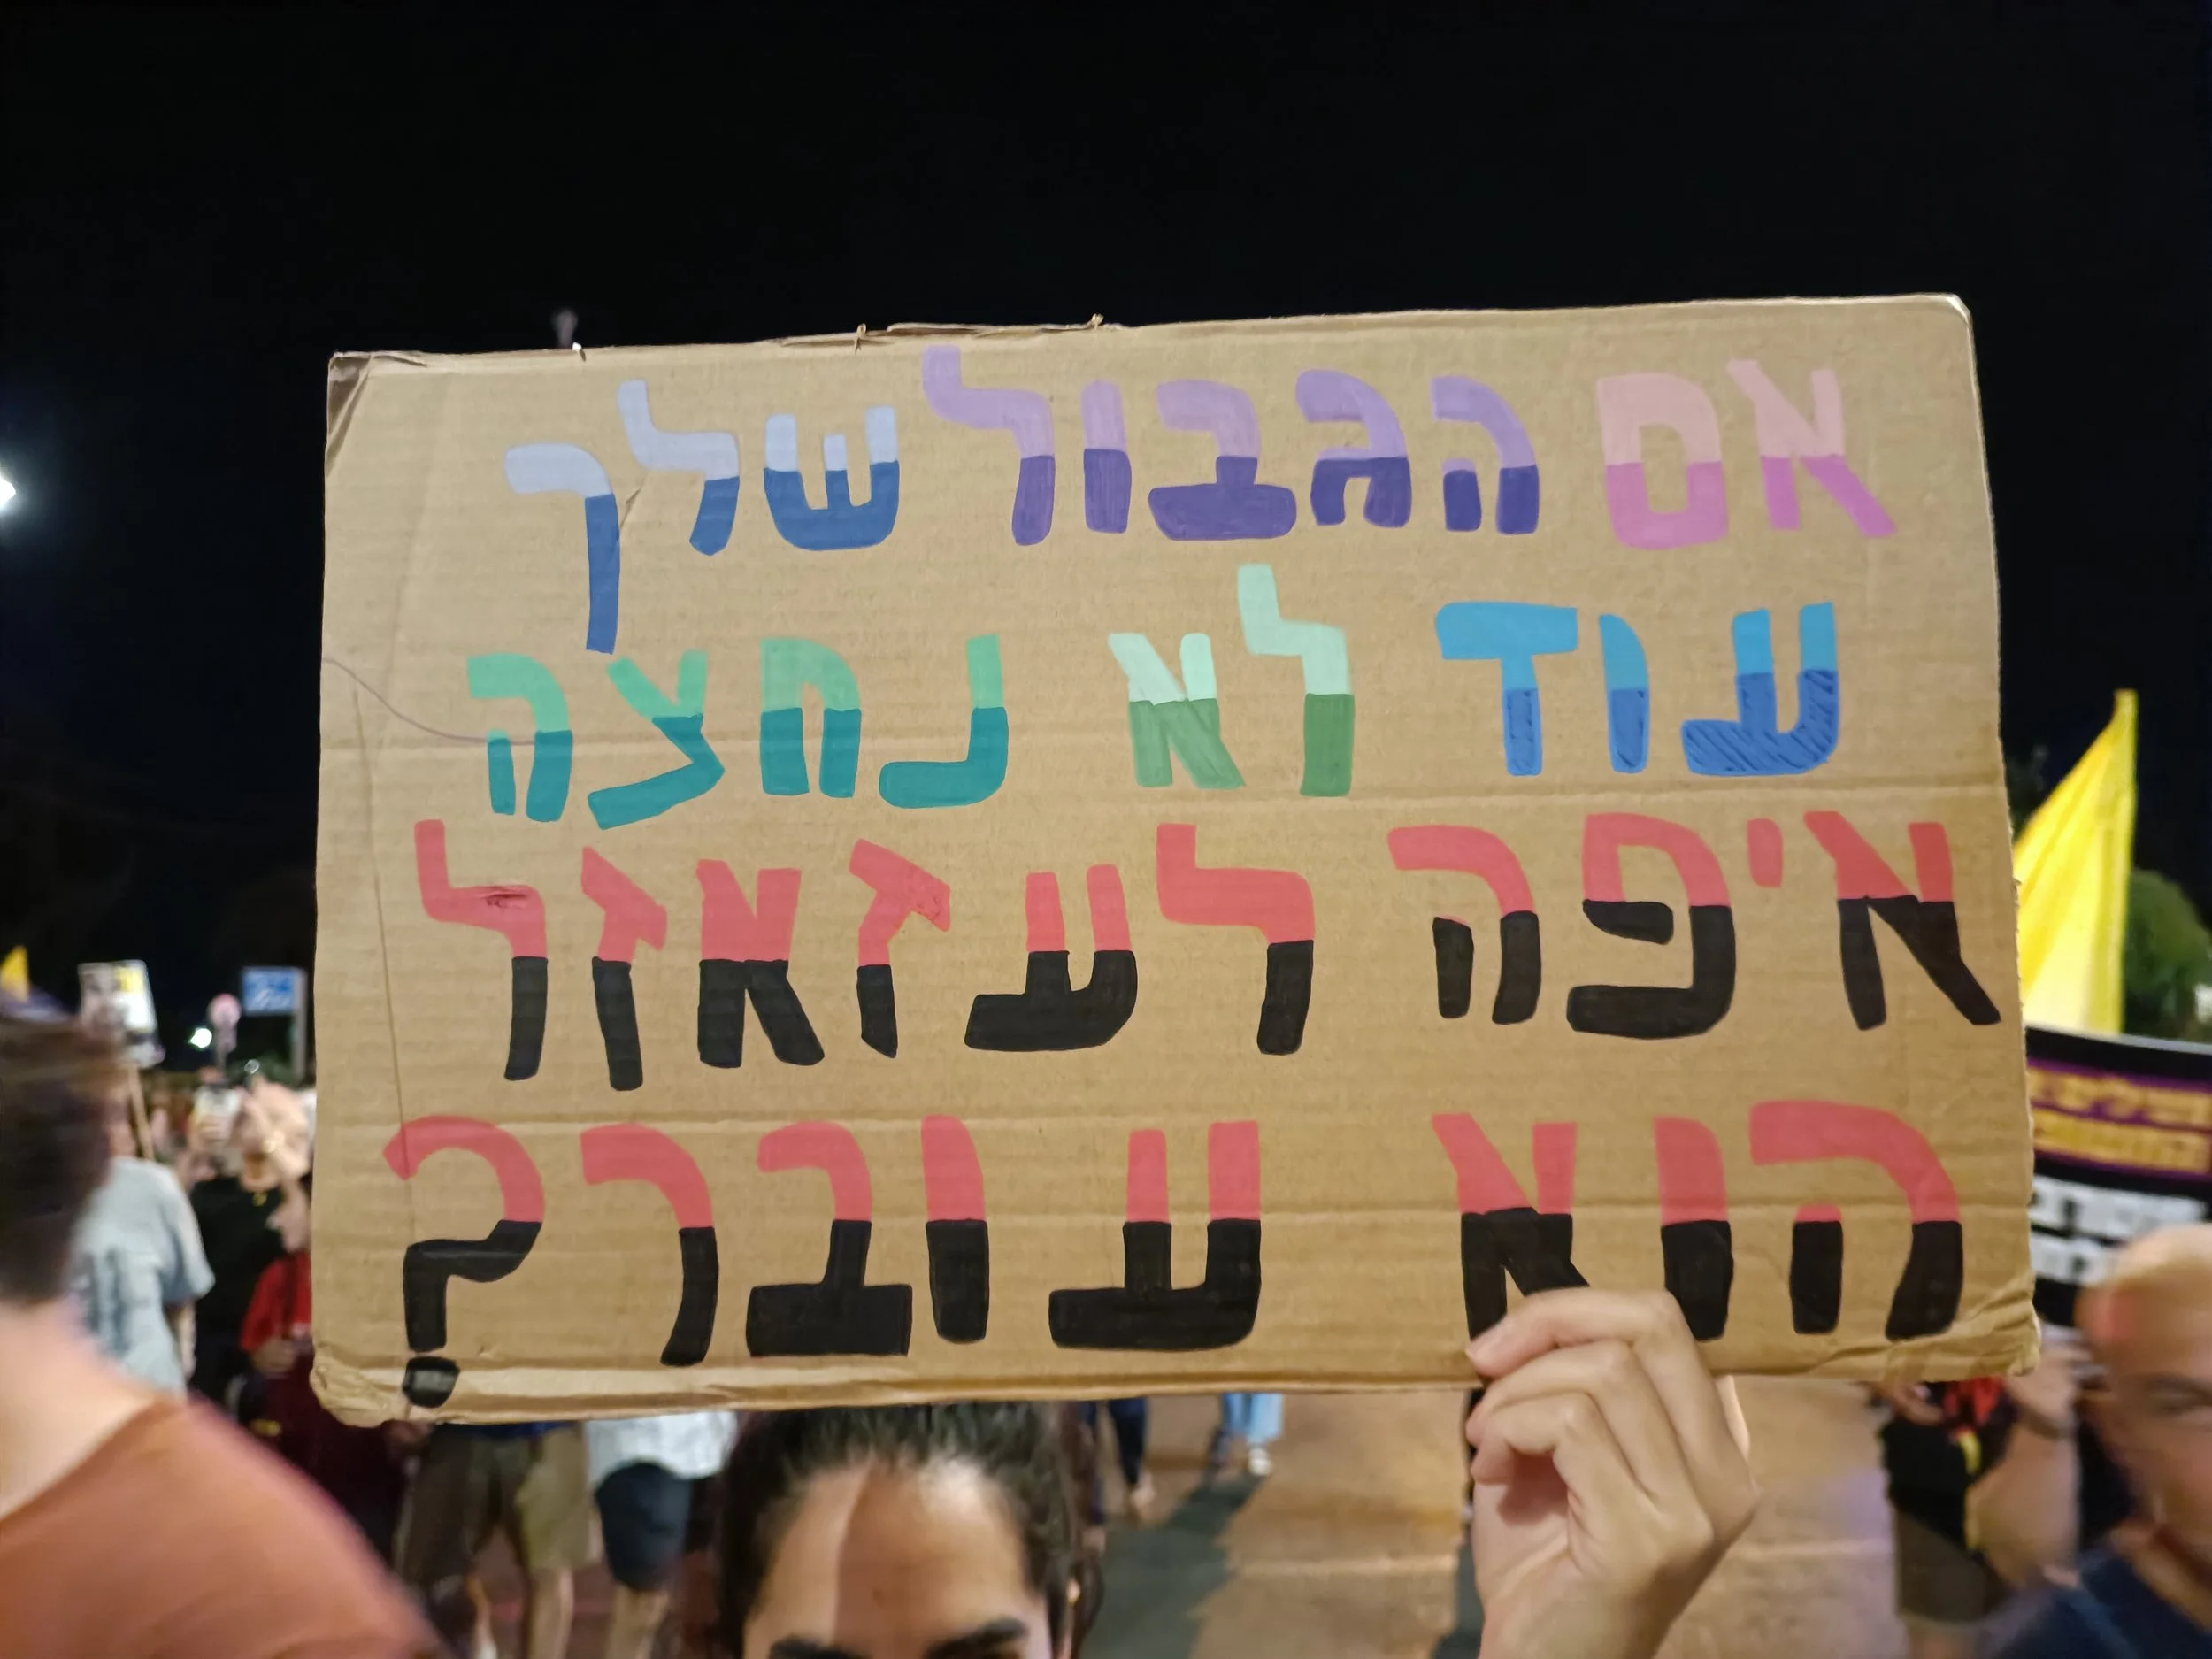 אם הגבול שלך
עוד לא נחצה
איפה לעזאזל
הוא עובר?